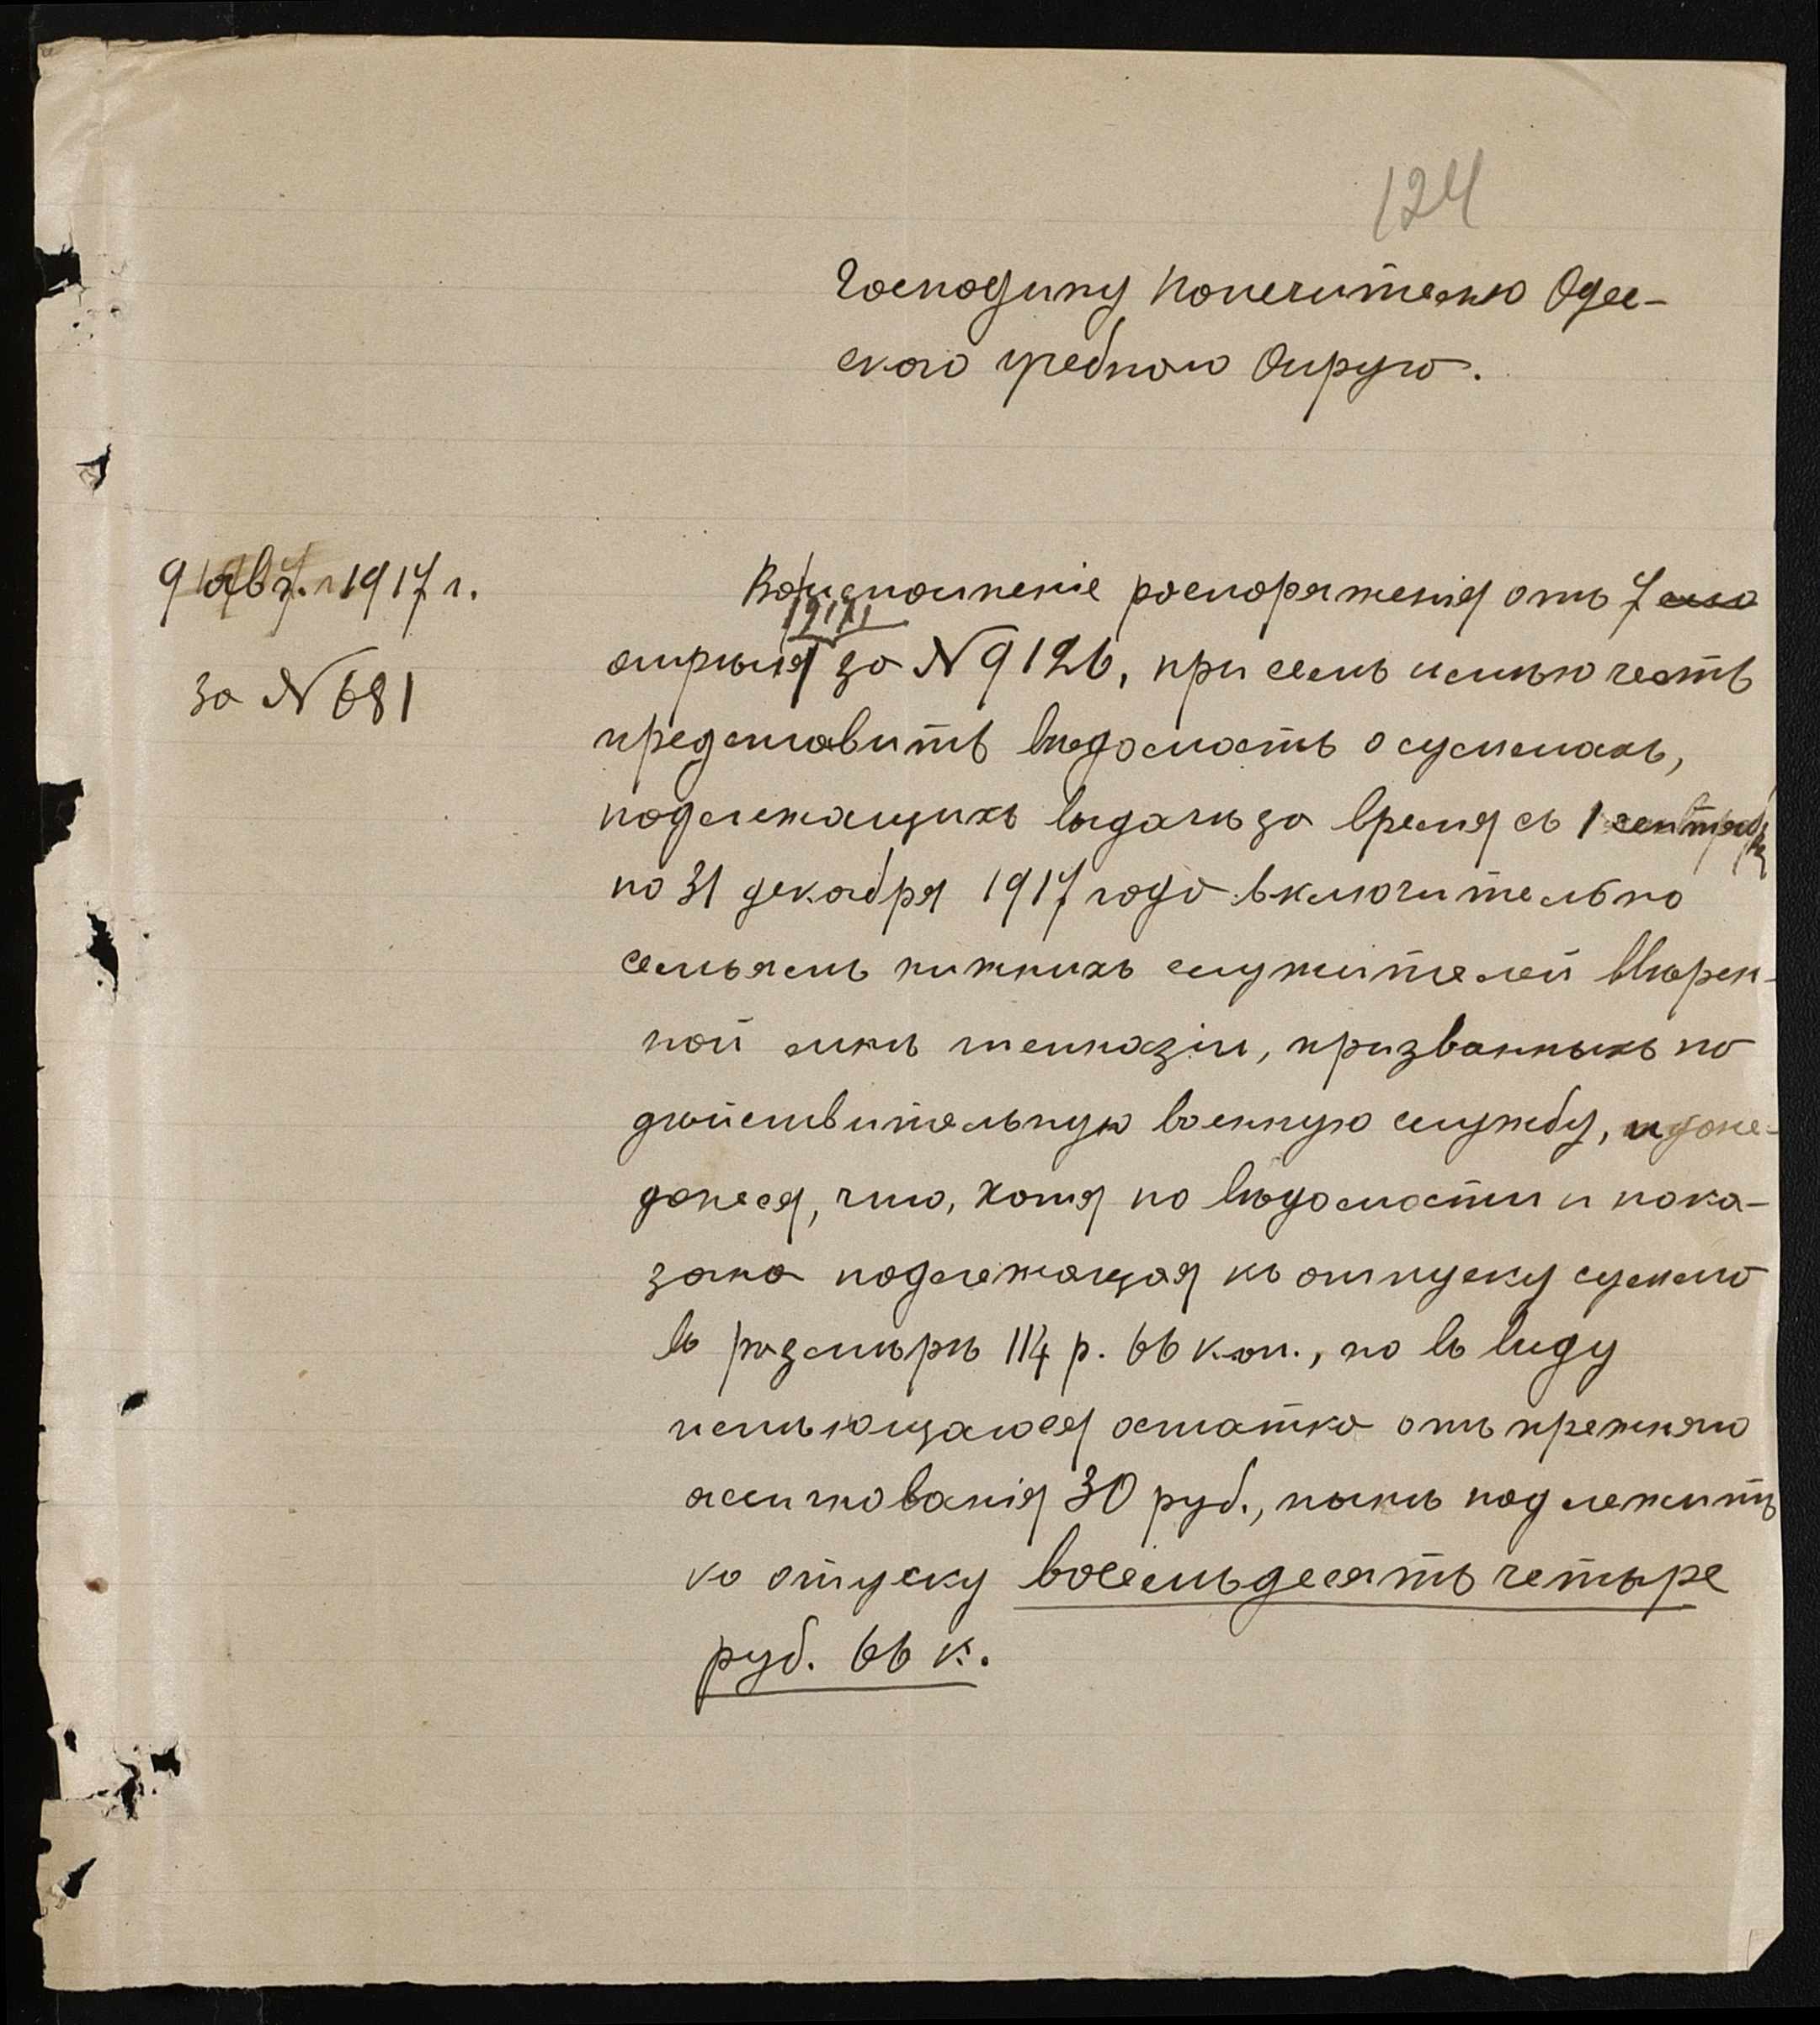 124
Господину Попечителю Одес-
скаго учебнаго Округа.
9 авг. 1917 г.
за № 681
Во исполненіе распоряженія отъ 7
апрѣля за № 9126, при семъ имѣю честь
представить вѣдомость о суммахъ,
подлежащихъ выдачѣ за время съ 1 сентября
по 31 декабря 1917 года включительно
семьямъ нижнихъ служителей ввѣрен-
ной мнѣ гимназіи, призванныхъ на
дѣйствительную военную службу,
донеся, что, хотя по вѣдомости и пока-
зана подлежащая къ отпуску сумма
въ размѣрѣ 114 р. 66 коп., но въ виду
имѣющагося остатка отъ прежняго
ассигнованія 30 руб., нынѣ подлежитъ
ко отпуску восемьдесятъ четыре
руб. 66 к.